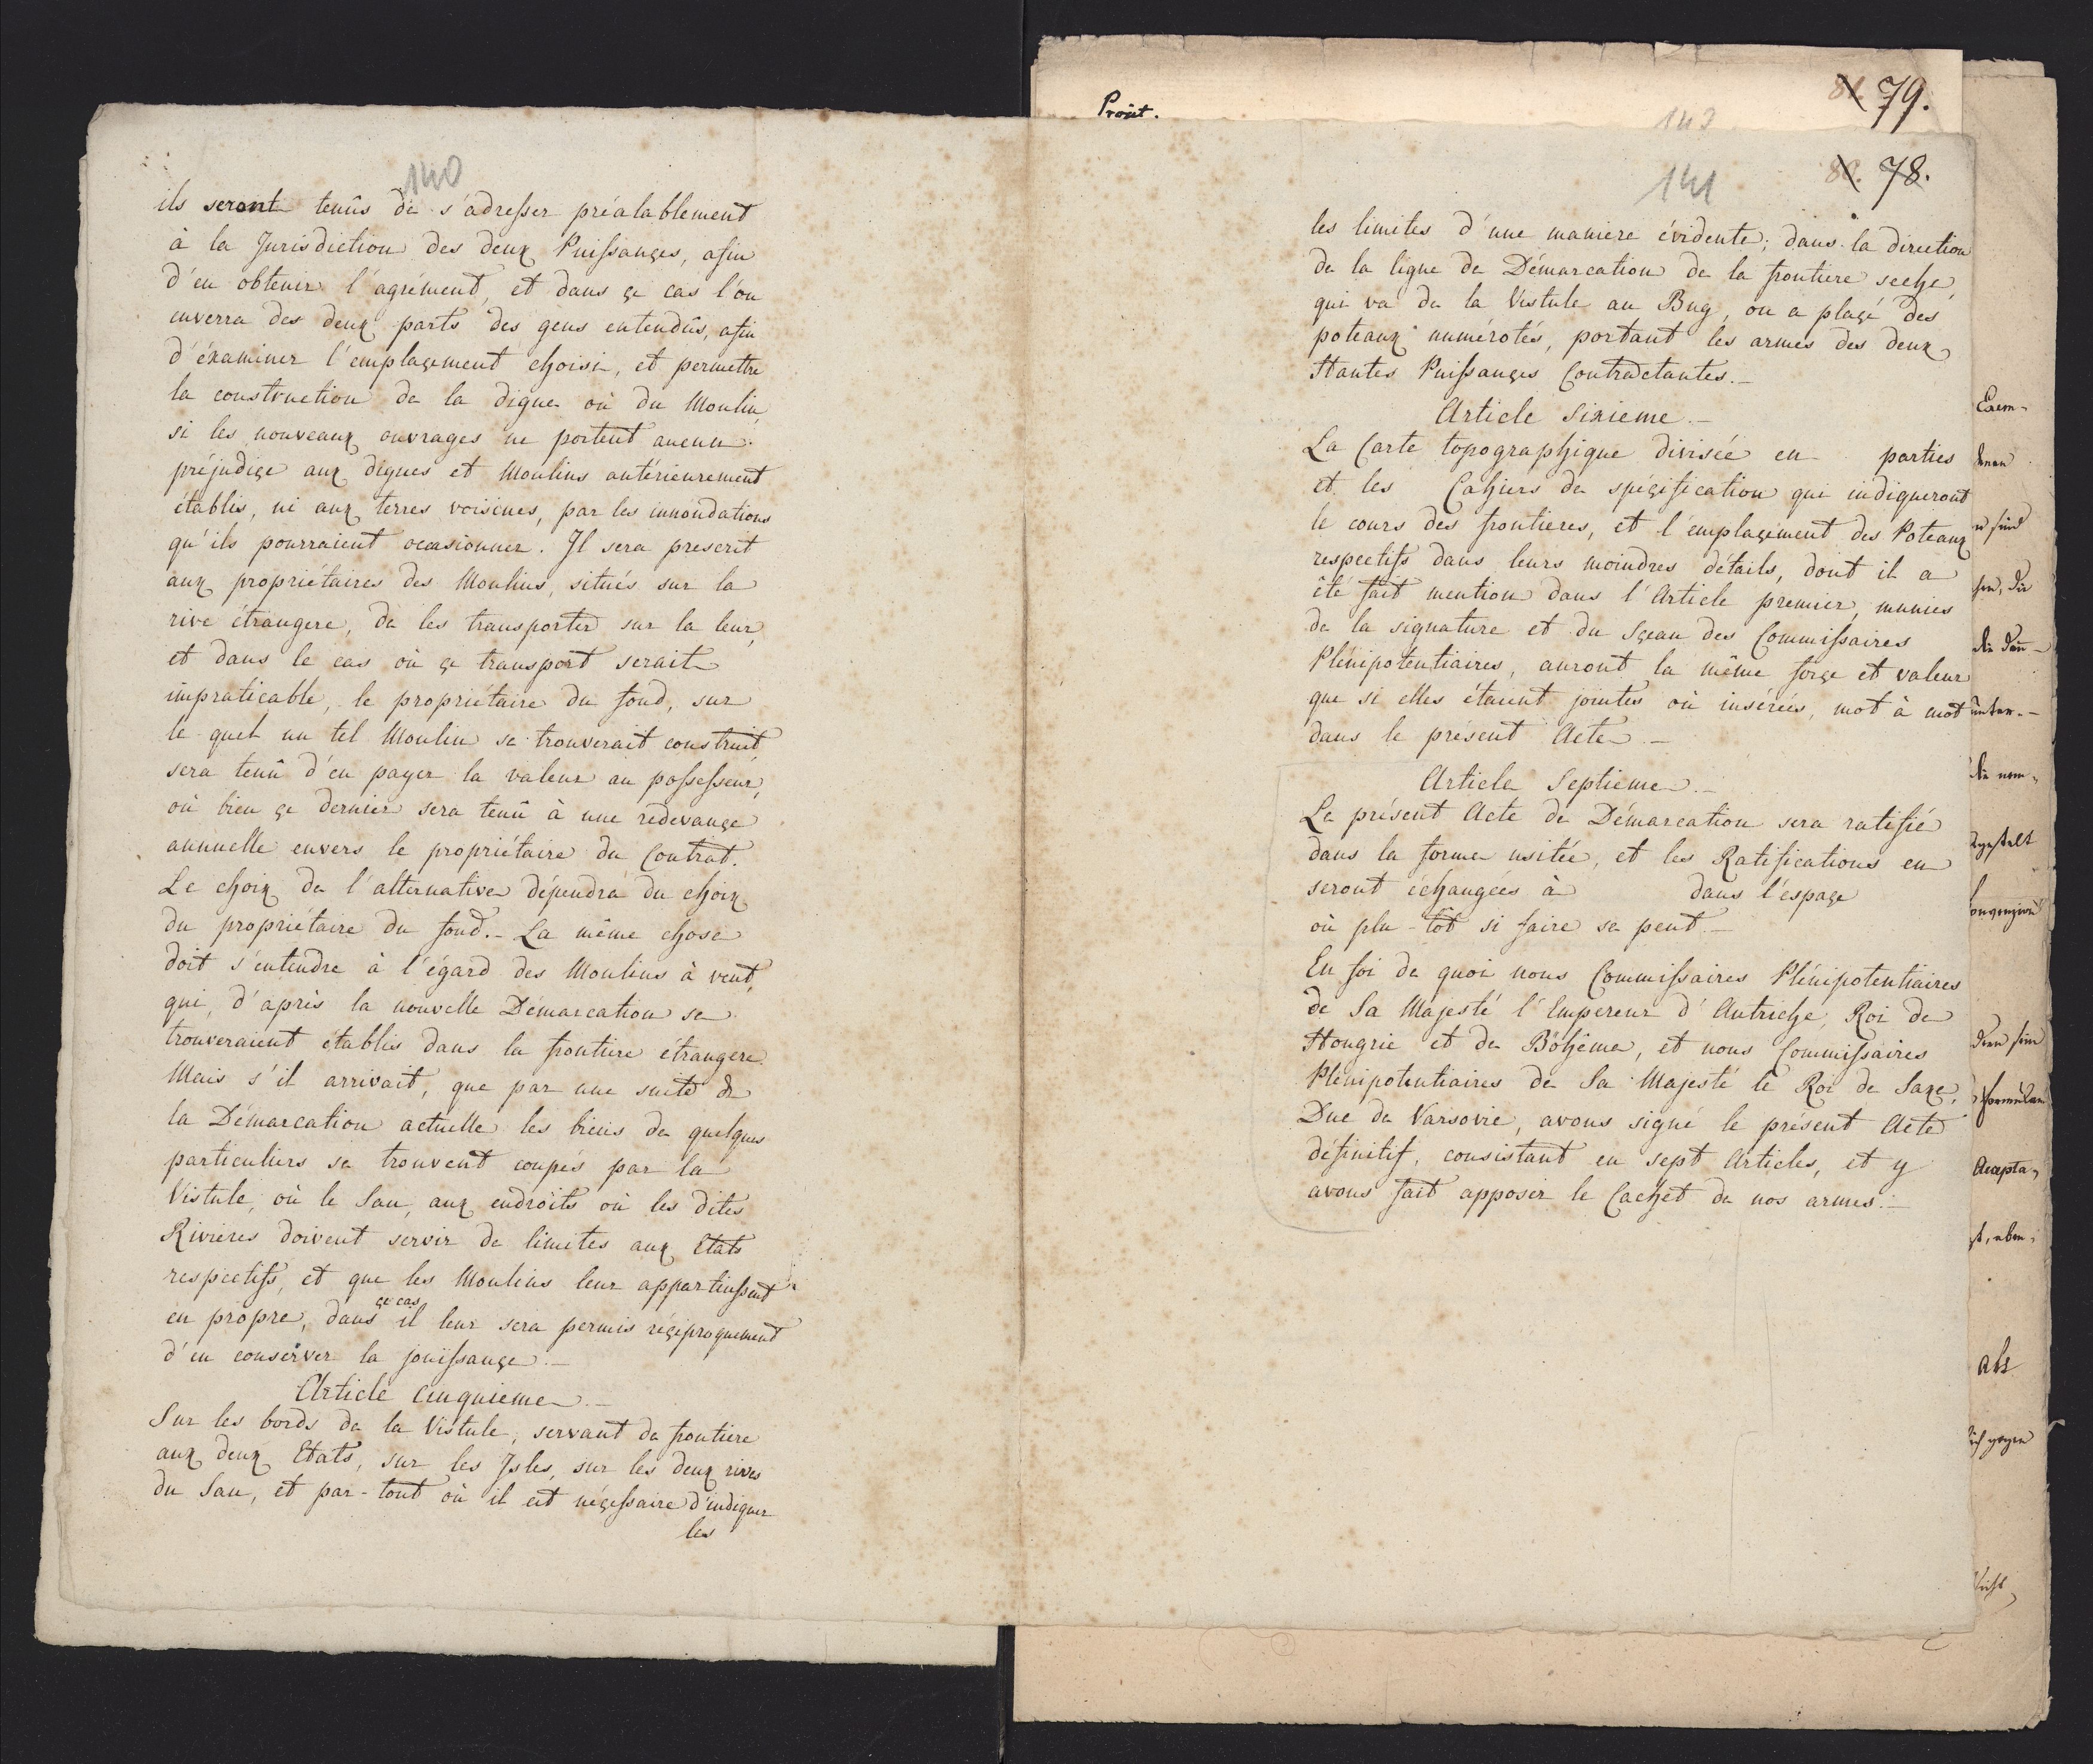 140
ils seront tenûs de s'adresser préalablement
à la Jurisdiction des deux Puissançes, afin
d'en obtenir l'agrément, et dans çe cas l'on
enverra des deux parts des gens entendûs, afin
d'éxaminer l'emplaçement choisi, et permettre
la construction de la digue où du Moulin,
si les nouveaux ouvrages ne portent aucun
préjudiçe aux digues et Moulins antérieurement
établis, ni aux terres voisines, par les innondations
qu'ils pourraient occasionner. Il sera prescrit
aux propriétaires des Moulins, situés sur la
rive étrangere, de les transporter sur la leur,
et dans le cas où çe transport serait
impraticable, le propriétaire du fond, sur
le quel un tel Moulin se trouverait construit,
sera tenû d'en payer la valeur au possesseur,
où bien çe dernier sera tenû à une redevançe
annuelle envers le propriétaire du Contrat.
Le choix de l'alternative dépendra du choix
du propriétaire du fond. - La même chose
doit s'entendre à l'égard des Moulins à vent,
qui, d'après la nouvelle Démarcation se
trouveraient établis dans la frontiere étrangere.
Mais s'il arrivait, que par une suite de
la Démarcation actuelle les biens de quelques
particuliers se trouvent coupés par la
Vistule, où le San, aux endroits où les dites
Rivières doivent servir de limites aux Etats
respectifs, et que les Moulins leur appartinssent
en propre, dans çe cas il leur sera permis réçiproquement
d'en conserver la jouissançe. -
Article cinquieme. -
Sur les bords de la Vistule, servant de frontiere
aux deux Etats, sur les Isles, sur les deux rives
du San, et par-tout où il est néçessaire d'indiquer
les
Proüt.
79.
141
78.
les limites d'une maniere évidente; dans la direction
de la ligne de Démarcation de la frontiere seche,
qui va de la Vistule au Bug, on a plaçé des
poteaux numérotés, portant les armes des deux
Hautes Puissançes Contractantes. -
Article Sixieme. -
La Carte topographique divisée en parties
et les Cahiers de spéçification qui indiqueront
le cours des frontieres, et l'emplaçement des Poteaux
respectifs dans leurs moindres détails, dont il a
été fait mention dans l'Article premier, munies
de la signature et du Sçeau des Commissaires
Plénipotentiaires, auront la même forçe et valeur
que si elles étaient jointes où insérées, mot à mot
dans le présent Acte. -
Article Septieme. -
Le présent Acte de Démarcation sera ratifié
dans la forme usitée, et les Ratifications en
seront échangées à dans l'espaçe
où plu-tôt si faire se peut. -
En foi de quoi nous Commissaires Plénipotentiaires
de Sa Majesté l'Empereur d'Autriche, Roi de
Hongrie et de Bohême, et nous Commissaires
Plénipotentiaires de Sa Majesté le Roi de Saxe,
Duc de Varsovie, avons signé le présent Acte
définitif, consistant en sept Articles, et y
avons fait apposer le Cachet de nos armes. -
Exem-
Accepta-
als